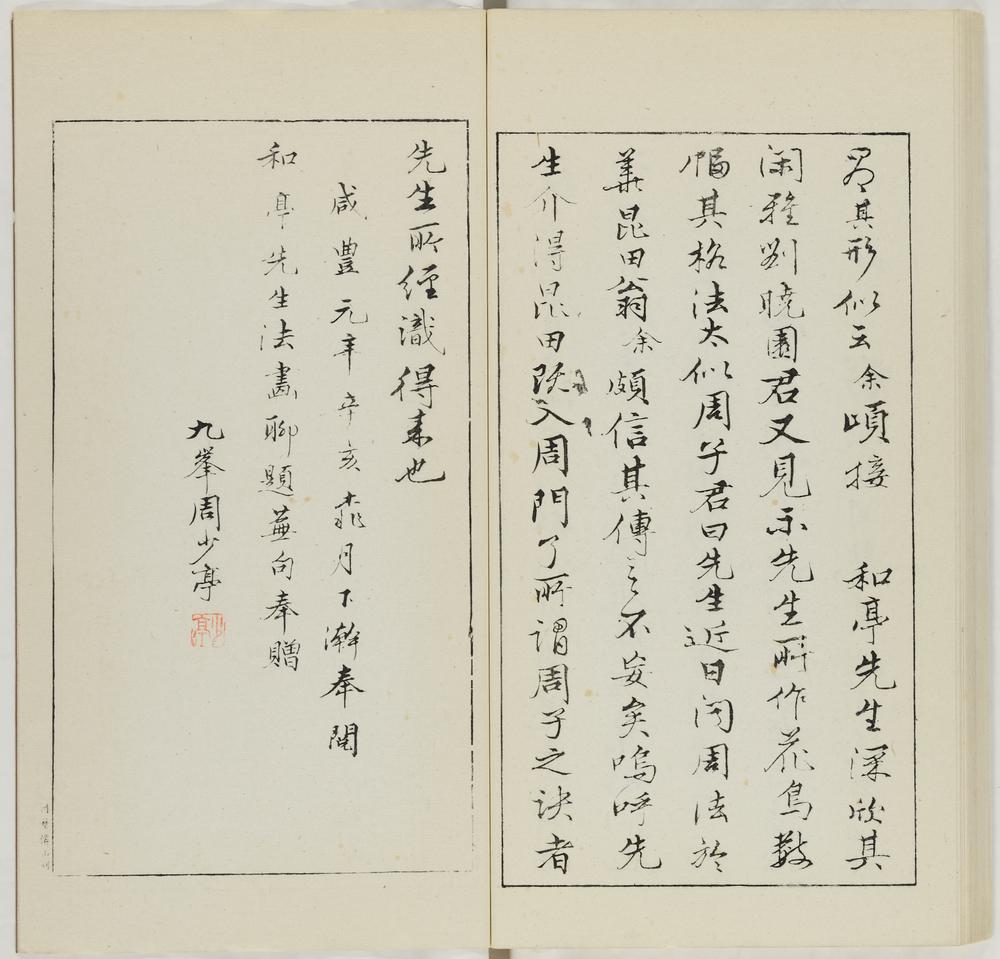 畧其形似云余頃接　和亭先生深欣其
閑雅劉曉園君又見示先生所作花鳥數
幅其格法太似周子君曰先生近日問周法於
華昆田翁余頗信其傳之不妄矣嗚呼先
生介得昆田既入周門了所謂周子之訣者
先生所經識得來也
咸豐元年辛亥桃月下澣奉閱
和亭先生法畫聊題蕪句奉贈
九峯周少亭
少亭